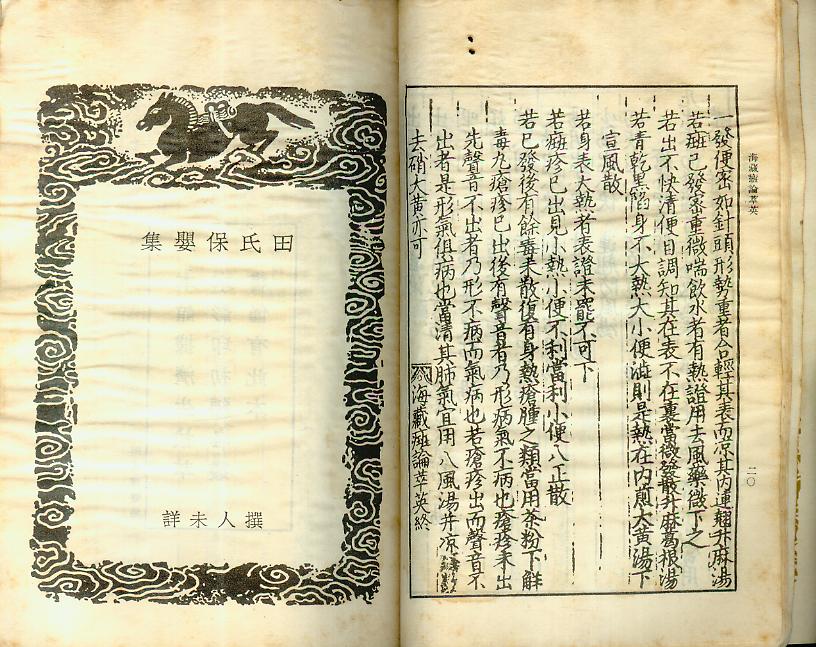 海藏癍論萃英
二〇
一發便密如針頭形勢重者合輕其表而凉其内連翹升麻湯
若癍已發密重微喘飲水者有熱證用去風藥微下之
若出不快清便自調知其在表不在裏當微發散升麻葛根湯
若青乾黑陷身不大熱大小便澁則是熱在内煎大黄湯下
宣風散
若身表大熱者表證未罷不可下
若癍疹已出見小熱小便不利當利小便八正散
若已發後有餘毒未散復有身熱瘡腫之類當用茶粉下解
毒丸瘡疹已出後有聲音者乃形病氣不病也瘡疹未出
先聲音不出者乃形不病而氣病也若瘡疹出而聲音不
出者是形氣俱病也當清其肺氣宜用八風湯并凉
去硝大黄亦可
海藏癍論萃英終
田氏保嬰集
撰人未詳